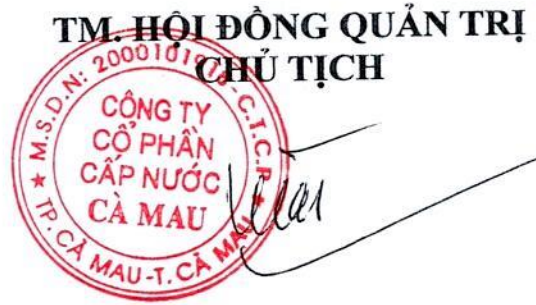 TM. HỘI ĐỒNG QUẢN TRỊ
CHỦ TỊCH
CÔNG TY
CỔ PHẦN
CẤP NƯỚC
CÀ MAU
★ TP. CÀ MAU-T. CÀ MAU ★